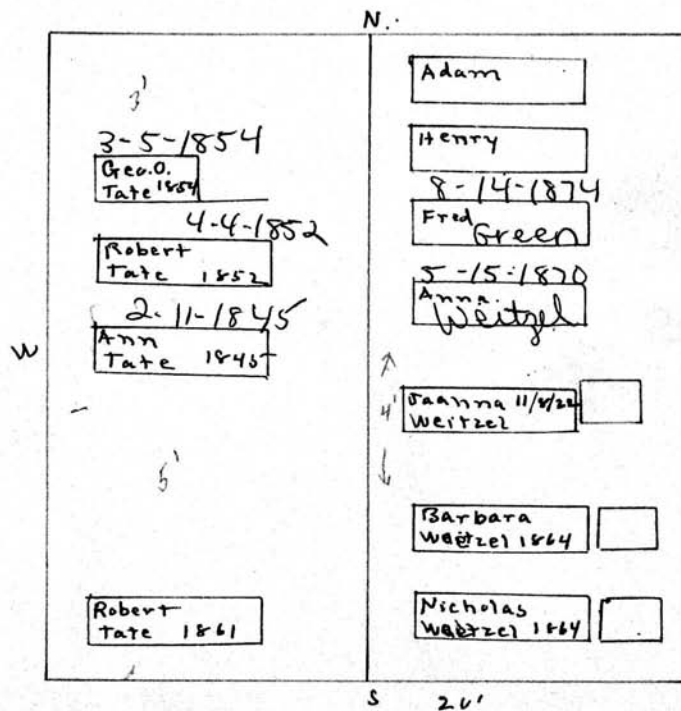 N.
3'
3-5-1854
Geo. O.
Tate 1854
4-4-1852
Robert
Tate 1852
2-11-1845
Ann
Tate 1845
W
5'
Robert
Tate 1861
Adam
Henry
8-14-1874
Fred
Green
5-15-1870
Anna
Weitzel
4'
Joanna 11/8/22
Weitzel
Barbara
Weitzel 1864
Nicholas
Weitzel 1864
S
20'